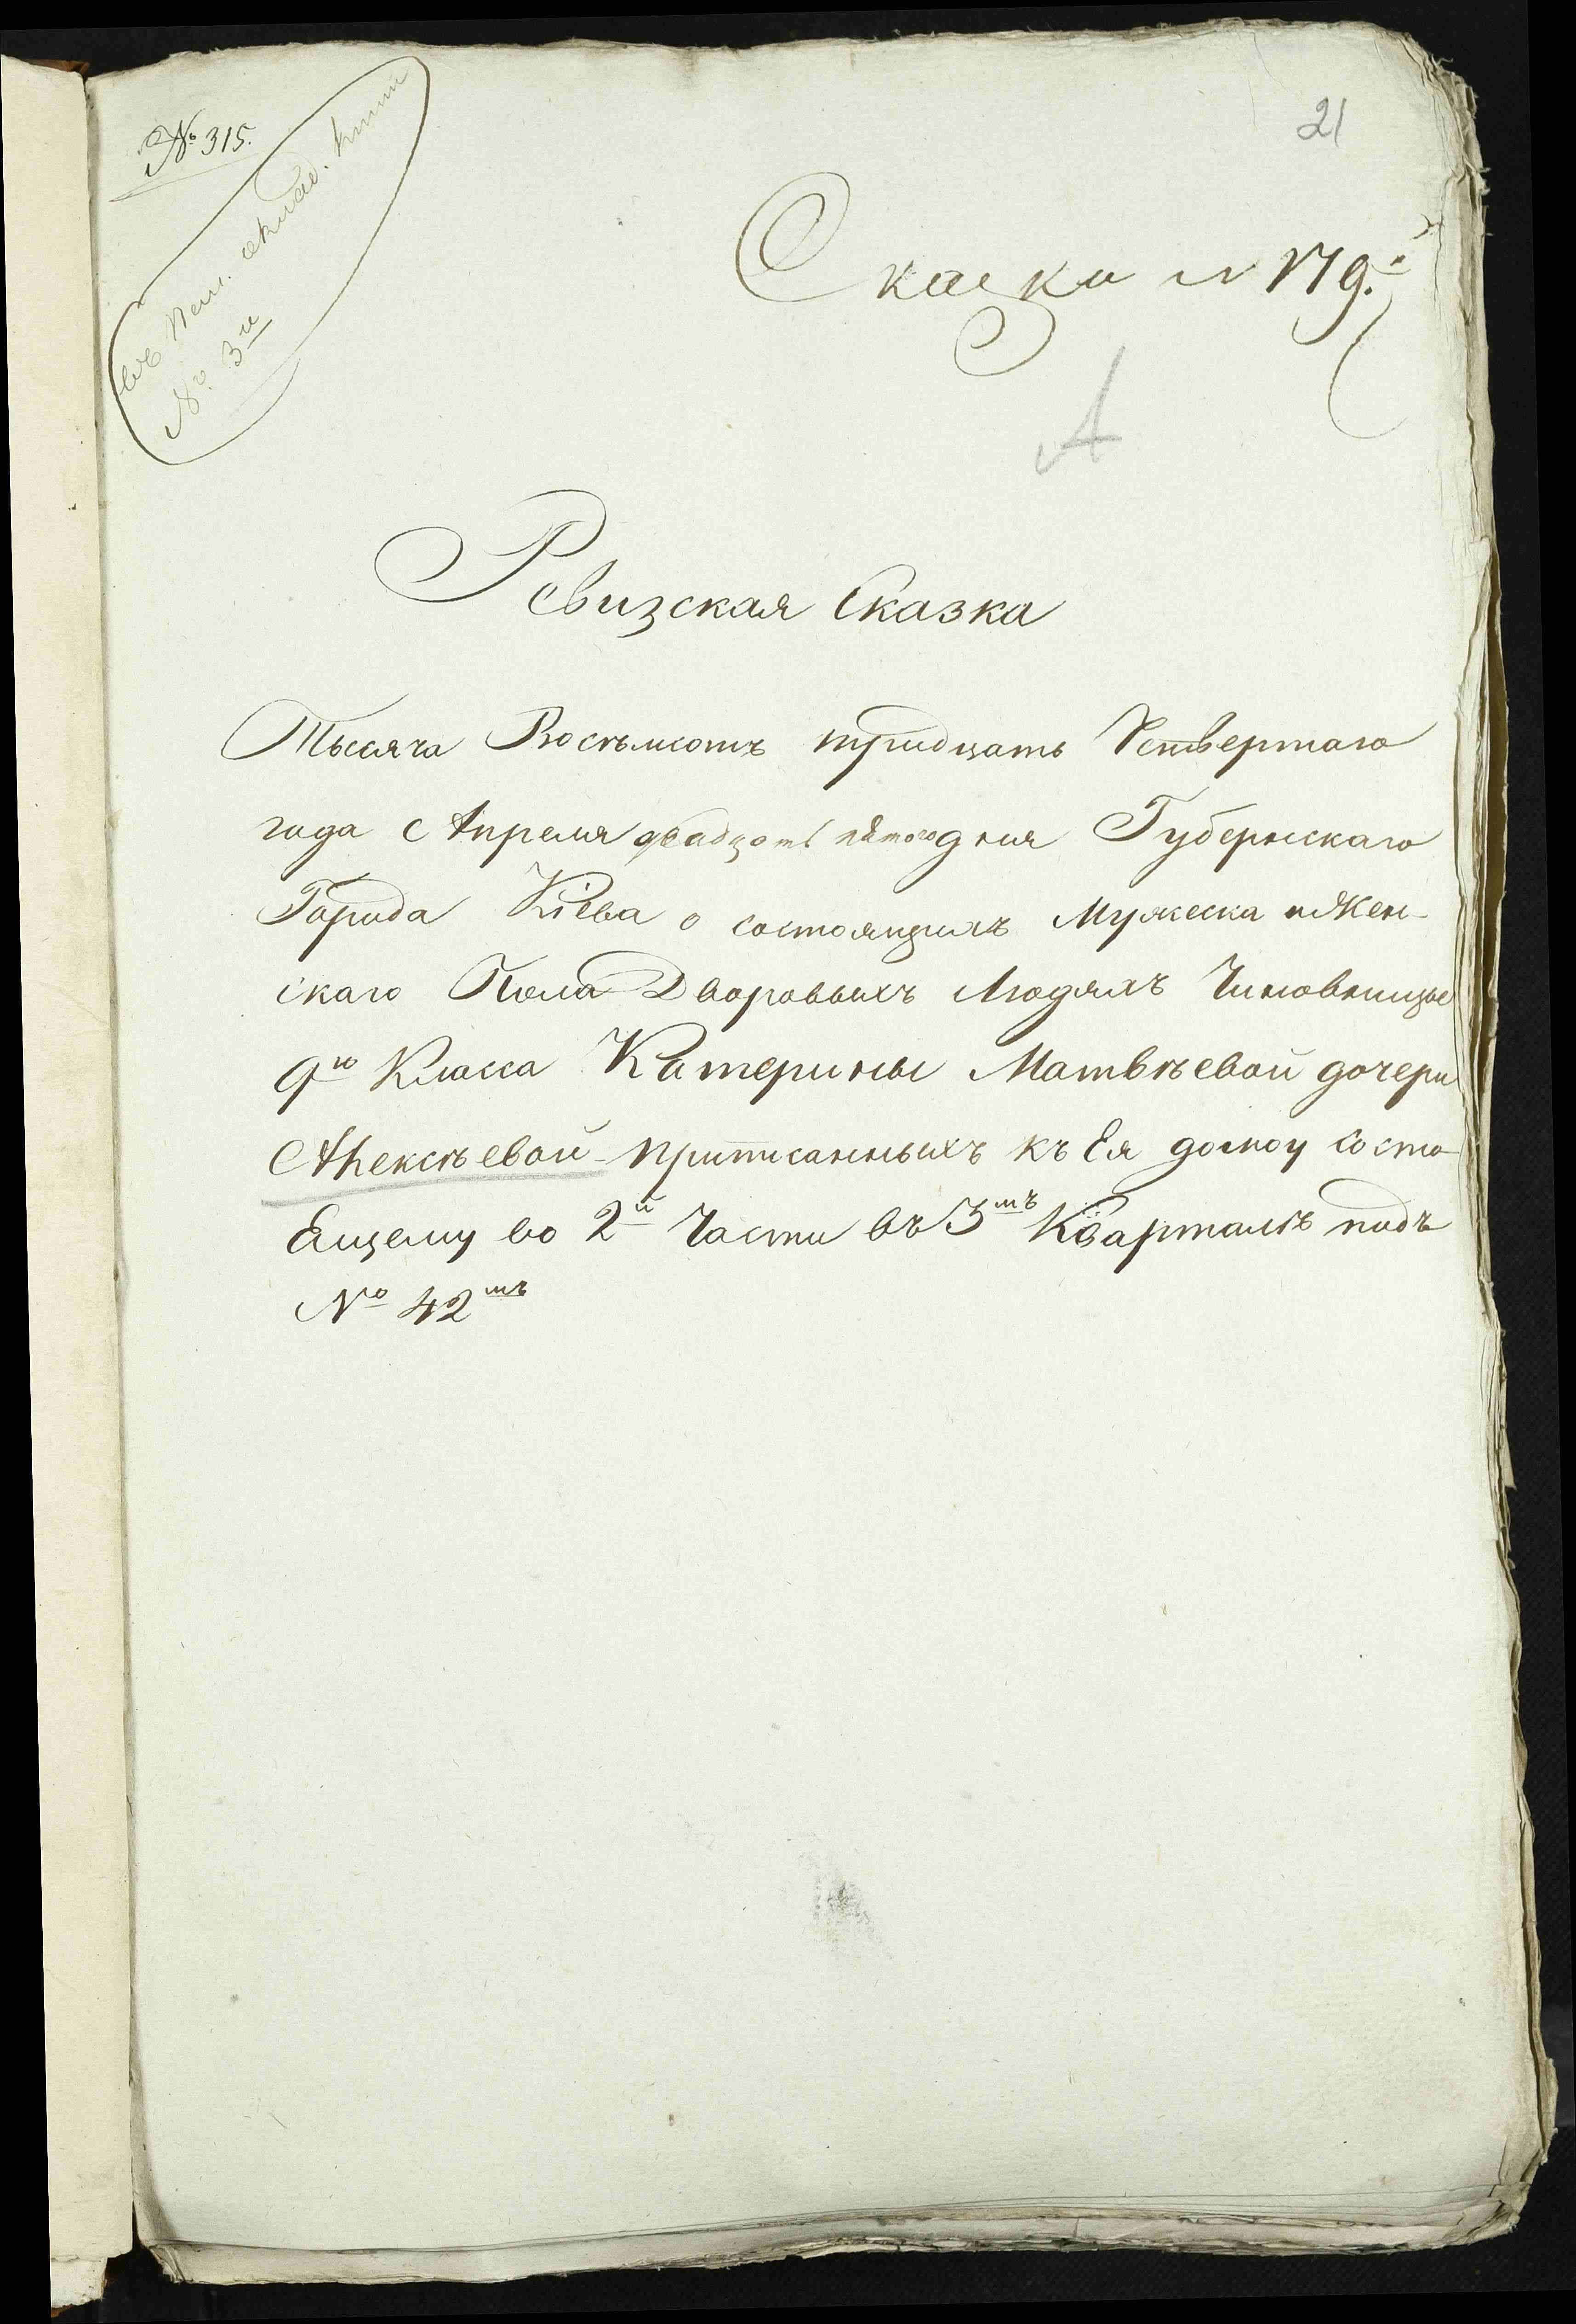 № 315.
21
въ оклад. книги
№. 3й
Сказка № 179.
А
Ревизская Сказка
Тысяча Восъмсотъ тридцать Четвертаго
года Апреля двадцать пятого дня Губернскаго
Города Кіева о состоящихъ Мужеска и Жен-
скаго Пола Дворовыхъ Людяхъ Чиновницы
9го Класса Катерины Матвѣевой дочери
Алексѣевой приписанныхъ къ Ея дому состо-
Ещему во 2й Части въ 3мъ Кварталѣ подъ
№ 42мъ